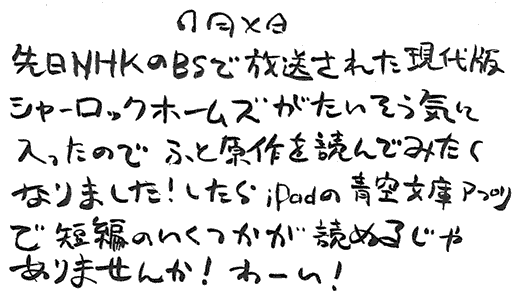 7月×日
先日NHKのBSで放送された現代版
シャーロックホームズがたいそう気に
入ったので ふと原作を読んでみたく
なりました！したら iPadの青空文庫アプリ
で短編のいくつかが読めるじゃ
ありませんか！わーい！